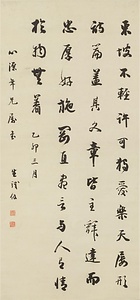 東坡不輕許可特愛樂天屢形
篇蓋其文章皆主辭達而
忠厚好施剛直盡言與人有情
於物無著 乙卯三月
心源年兄屬